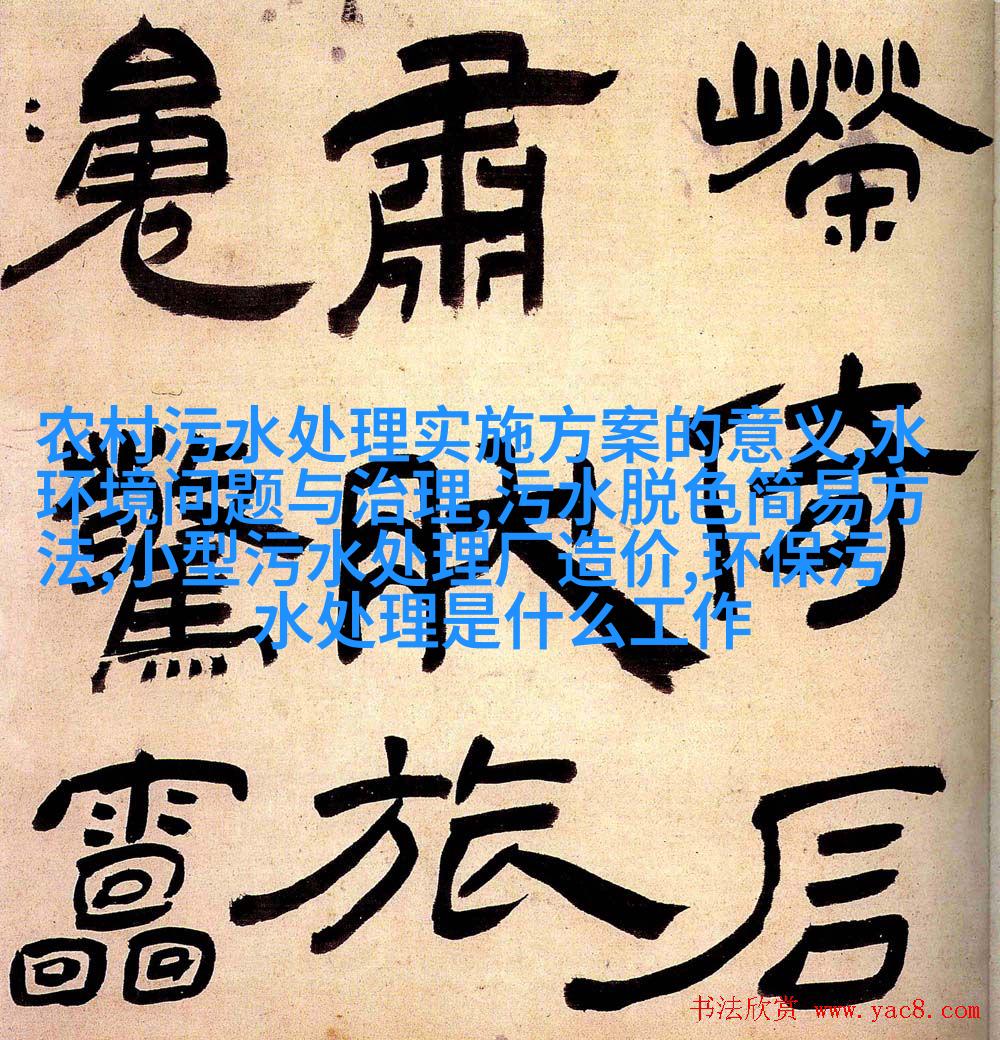 嶸倚后
肅旅
農村污水处理实施方案的意义,水
环境问题与治理,污水脱色简易方
法,小型污水处理厂造价,环保污
水处理是什么工作
书法欣赏 www.yac8.com